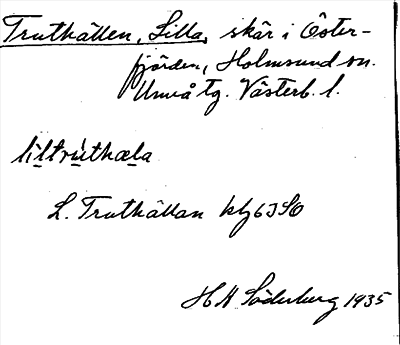 Truthällen, Lilla, skär i Öster-
fjärden, Holmsund sn.
Umeå tg. Västerb. l.
liltruthæla
L. Truthällan klg 63 SO
H H Söderberg 1935